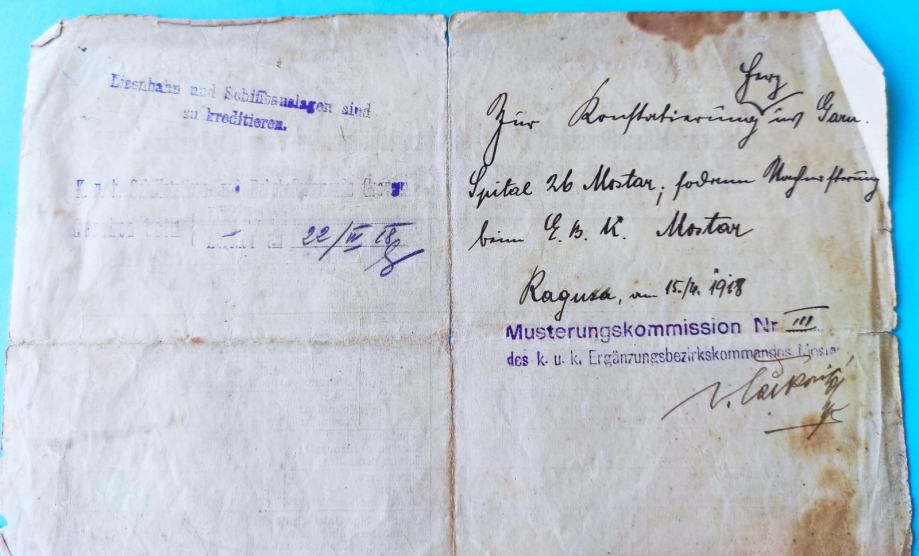 Eisenbahn und Schiffsauslagen sind
zu kreditieren.
K. u. k.
22/IV 18
Herz
Zur Konstatierung ins Garn.
Spital 26 Mostar, sodann Nachmusterung
beim E. B. K. Mostar
Ragusa, am 15./4. 1918
Musterungskommission Nr III
des k. u. k. Ergänzungsbezirkskommandos Mostar